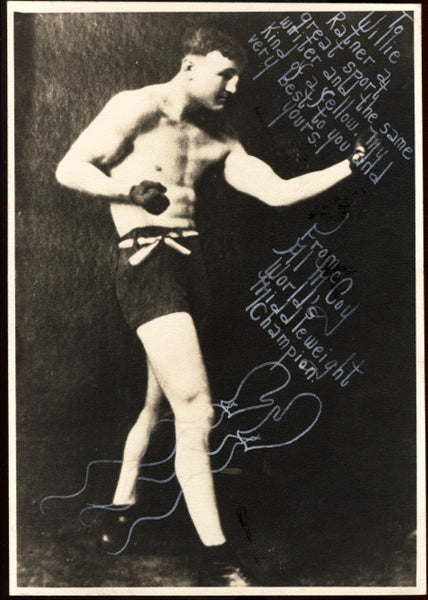 To
Willie
Ratner a
great sport
writer and the same
Kind of a fellow my
very best to you and
yours!
From
Al McCoy
World's
Middleweight
Champion.